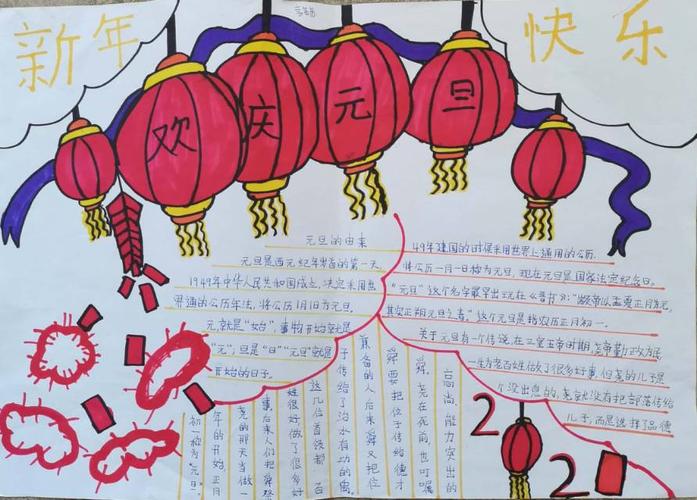 新年 快乐
欢庆元旦
元旦的由来
元旦是西元纪年岁首的第一天
1949年中华人民共和国成立，决定采用世
界通的公历年法，将公历1月1日为元旦。
元就是“始”，事物开始就是
“元”；旦是“日”“元旦”就是
开始的日子。
49年建国的时候采用世界上通用的公历.
将公历一月一日称为元旦，现在元旦是国家法定纪念日。
“元旦”这个名字最早出现在《晋书》：“颛帝以孟夏正月为元，
其实正朔元旦之春。”这个元旦是指农历正月初一。
关于元旦有一个传说，在三皇五帝时期，尧帝勤政为民
一生为老百姓做了很多好事，但尧的儿子是
个没出息的，尧就没有把部落传给
儿子，而是选择了品德
高尚、能力突出的
舜。尧在死前也叮嘱
舜要把位子传给德才
兼备的人后来舜又把位
子传给了治水有功的禹。
这几位首领都百
姓很好，做了很多好
事后来人们把舜祭
尧的那天当做一
年的开始正月
初一称为“元旦”。
2 2